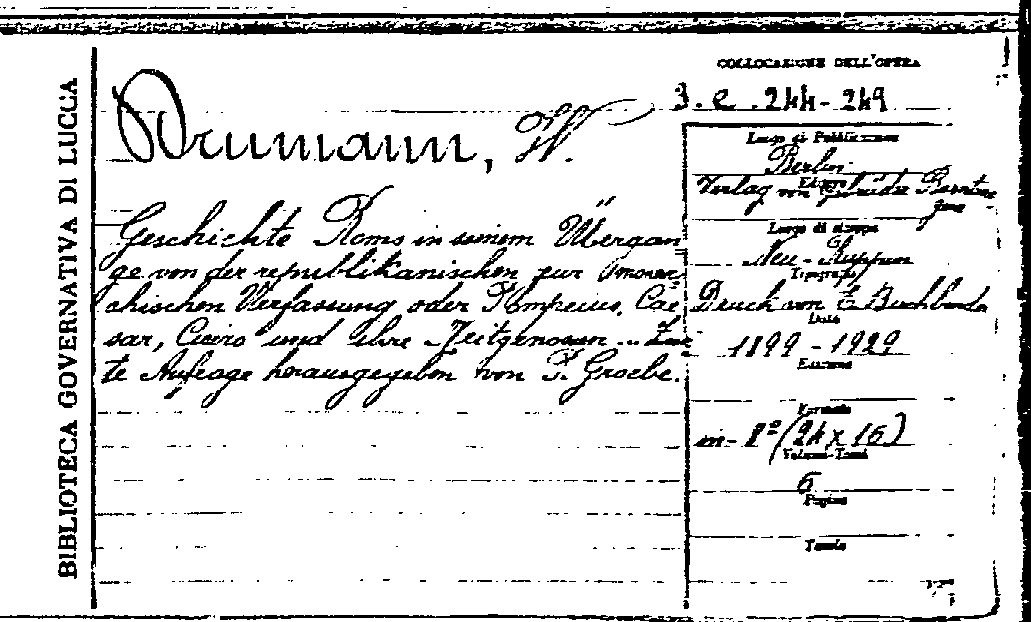 BIBLIOTECA GOVERNATIVA DI LUCCA
COLLOCAZIONE DELL'OPERA
3. e. 244-249
Drumann, W.
Geschichte Roms in seinem Übergan
ge von der republikanischen zur monar
chischen Verfassung oder Pompeius, Cae
sar, Cicero und ihre Zeitgenossen... Zwei
te Auflage herausgegeben von P. Groebe.
Luogo di Pubblicazione
Berlin
Editore
Verlag von Gebrüder Borntrae
ger
Luogo di stampa
Neu-Ruppin
Tipografo
Druck von E. Buchbinder
Data
1899-1929
Edizione
Formato
in-8º (24 x 16)
Volume-Tomi
6
Pagine
Tavole